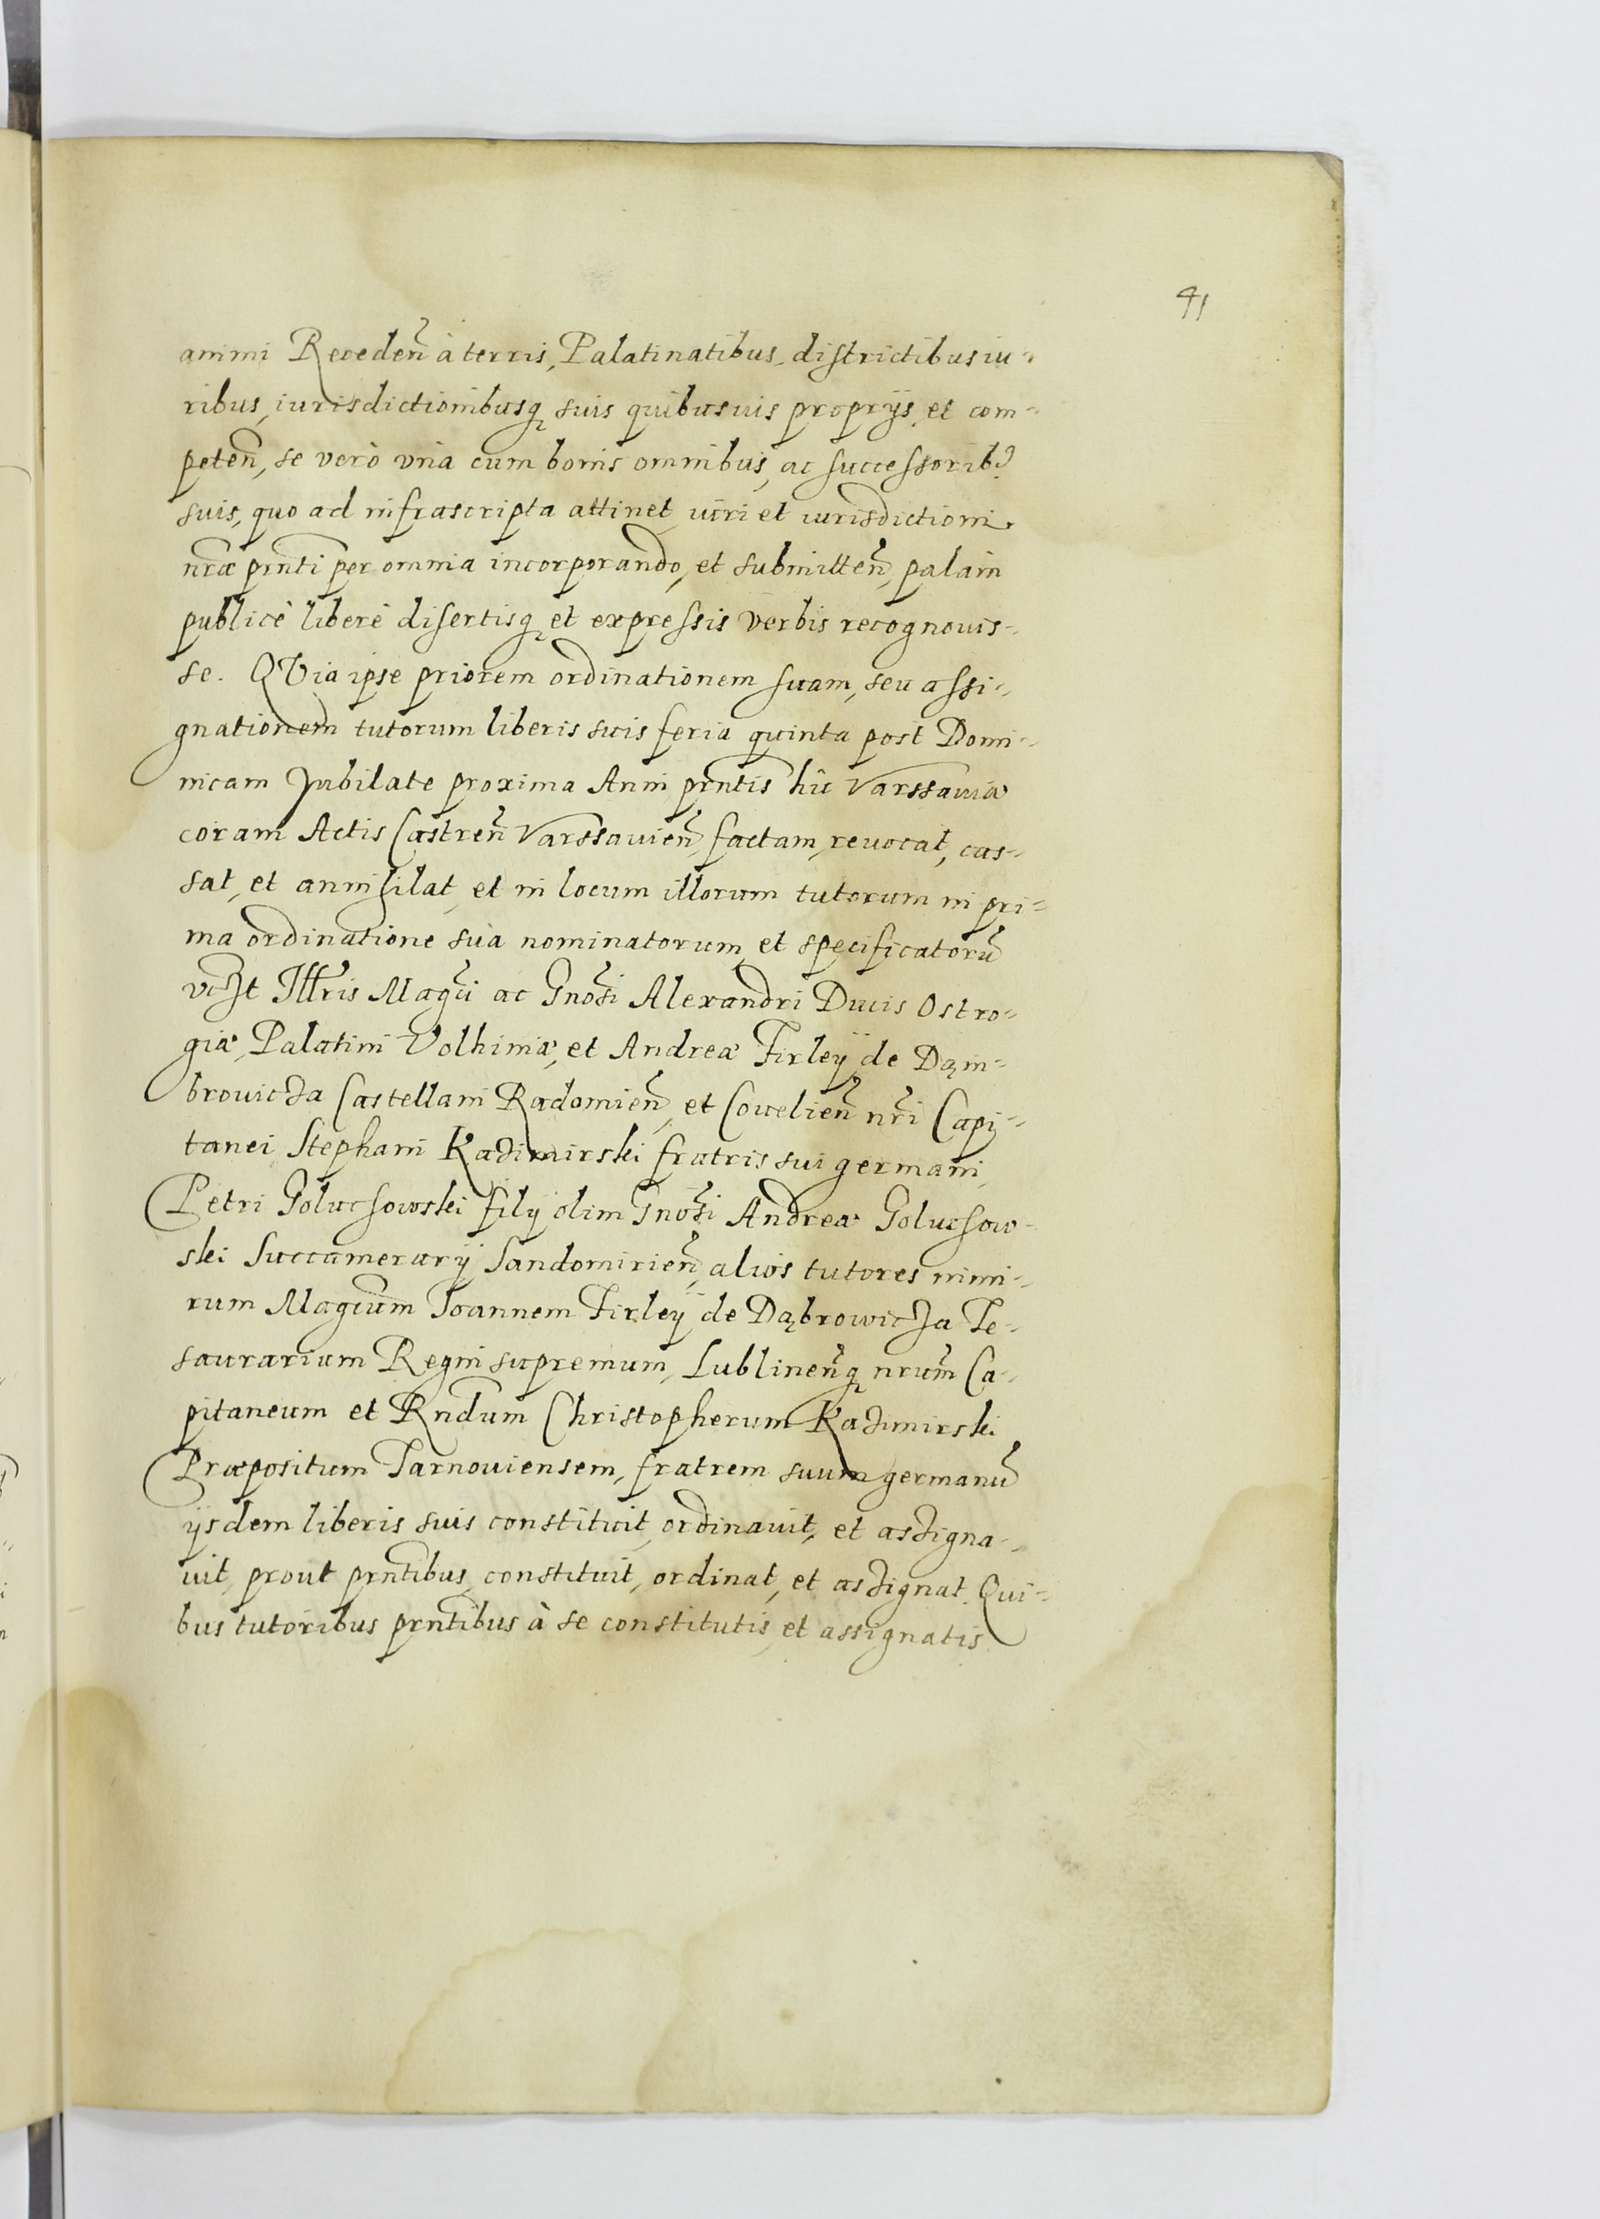 41
animi Receden̄ à terris, Palatinatibus, districtibus iu-
ribus, iurisdictionibusq̨ suis quibusuis proprijs et com-
peten̄, se verò vnà cum bonis omnibus, ac successorib9
suis, quo ad infrascripta attinet iuri et iurisdictioni
nr̄æ prn̄ti per omnia incorporando, et submitten̄, palàm
publicè liberè disertisq̨ et expressis verbis recognouis-
se. QVia ipse priorem ordinationem suam, seu assi-
gnationem tutorum liberis suis feria quinta post Domi-
nicam Jubilate proxima Anni prn̄tis hìc Varssauiæ
coram Actis Castren̄ Varssauien̄ factam, reuocat, cas-
sat, et annihilat, et in locum illorum tutorum in pri-
ma ordinatione sua nominatorum et specificatorū
vczt Illr̄is Magc̄i ac Gnosi Alexandri Ducis Ostro-
giæ, Palatini Volhiniæ, et Andreæ Firleÿ de Dąm-
browicza Castellani Radomien̄, et Couelien̄ nr̄i Capi-
tanei Stephani Kazimirski fratris sui germani,
Petri Goluchowski filij olim Gnosi Andreæ Goluchow-
ski Succamerarij Sandomirien̄, alios tutores nimi-
rum Magcūm Joannem Firleÿ de Dąbrowicza Te-
saurarium Regni supremum, Lublinen̄q̨ nrūm Ca-
pitaneum et Rn̄dum Christopherum Kazimirski
Præpositum Tarnouiensem, fratrem suum germanū
ijsdem liberis suis constituit, ordinauit, et aszigna-
uit, prout prn̄tibus constituit, ordinat, et aszignat. Qui-
bus tutoribus prn̄tibus à se constitutis et assignatis